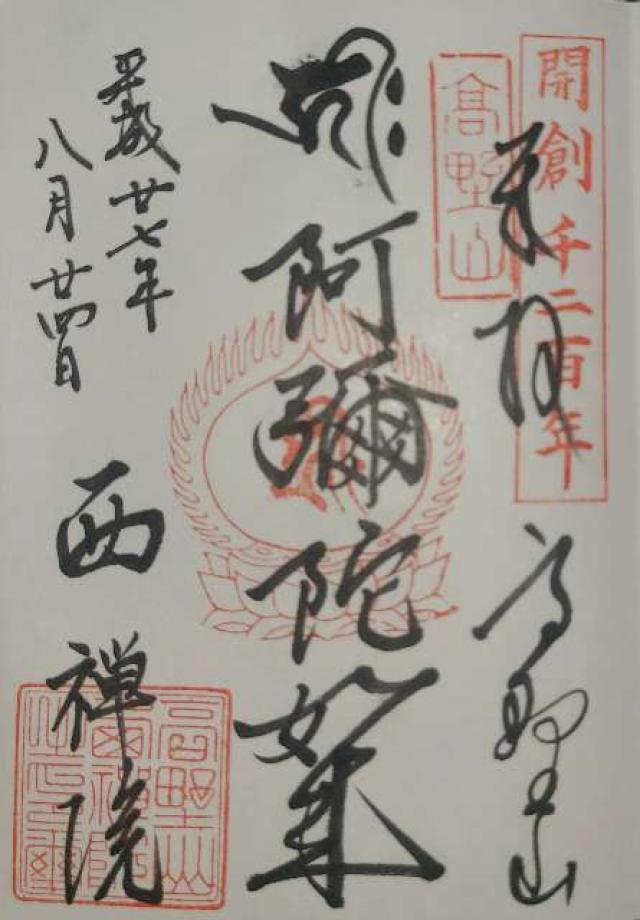 開創千二百年
奉拝 高野山
高野山
阿彌陀如来
平成廿七年
八月廿四日
西禅院